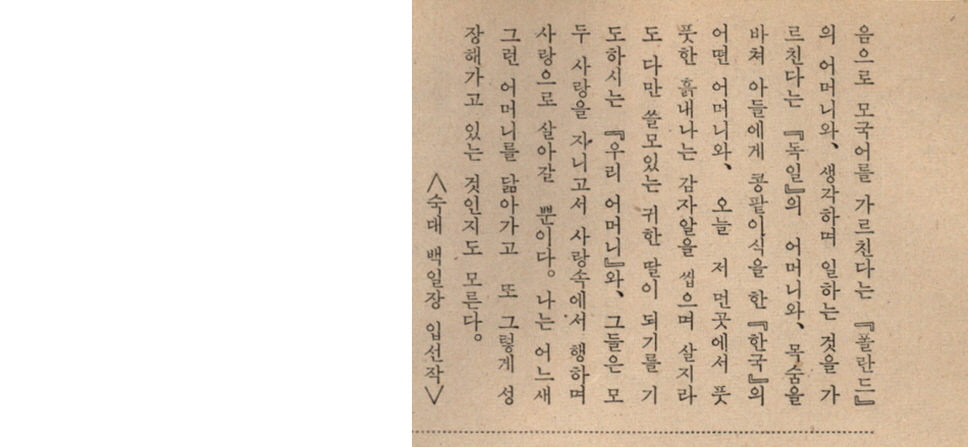 음으로 모국어를 가르친다는 『폴란드』
의 어머니와、 생각하며 일하는 것을 가
르친다는 『독일』의 어머니와、 목숨을
바쳐 아들에게 콩팥이식을 한 『한국』의
어떤 어머니와、 오늘 저 먼곳에서 풋
풋한 흙내나는 감자알을 씹으며 살지라
도 다만 쓸모있는 귀한 딸이 되기를 기
도하시는 『우리 어머니』와、 그들은 모
두 사랑을 지니고서 사랑속에서 행하며
사랑으로 살아갈 뿐이다。 나는 어느새
그런 어머니를 닮아가고 또 그렇게 성
장해가고 있는 것인지도 모른다。
<숙대 백일장 입선작>